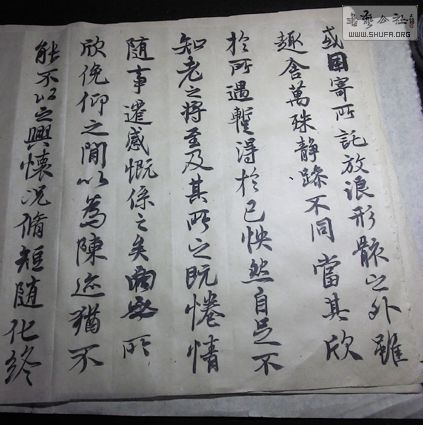 或因寄所託放浪形骸之外雖
趣舎萬殊静躁不同當其欣
於所遇蹔得於己怏然自足不
知老之將至及其所之既惓情
隨事遷感慨係之矣向之所
欣俛仰之閒以為陳迹猶不
能不以之興懷況脩短隨化終
公社
WWW.SHUFA.ORG